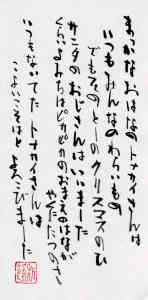 まっかなおはなのトナカイさんは
いつもみんなのわらいもの
でもそのとしのクリスマスのひ
サンタのおじさんはいいました
くらいよみちはピカピカのおまえのはなが
やくにたつのさ
いつもないてたトナカイさんは
こよいこそはとよろこびました